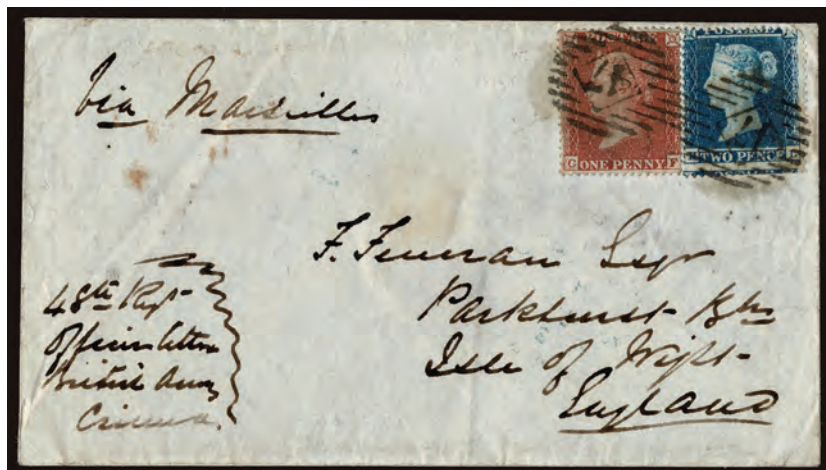 via Marseilles
POSTAGE
C ONE PENNY F
TWO PENCE
F. Esqr
Parkhurst Bks
Isle of Wight
England
48th Regt
Officers letter
British Army
Crimea.